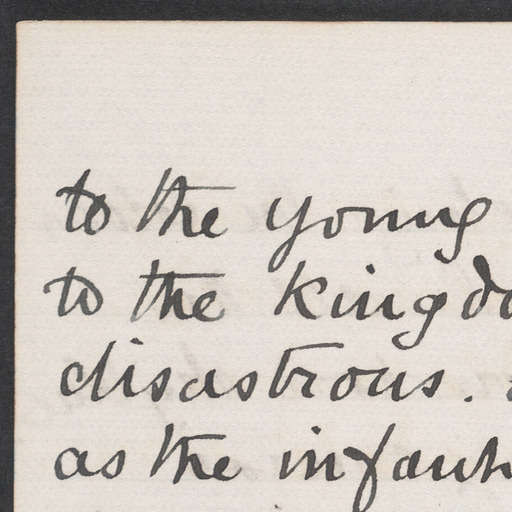 to the young
to the kingdo
disastrous.
as the infant